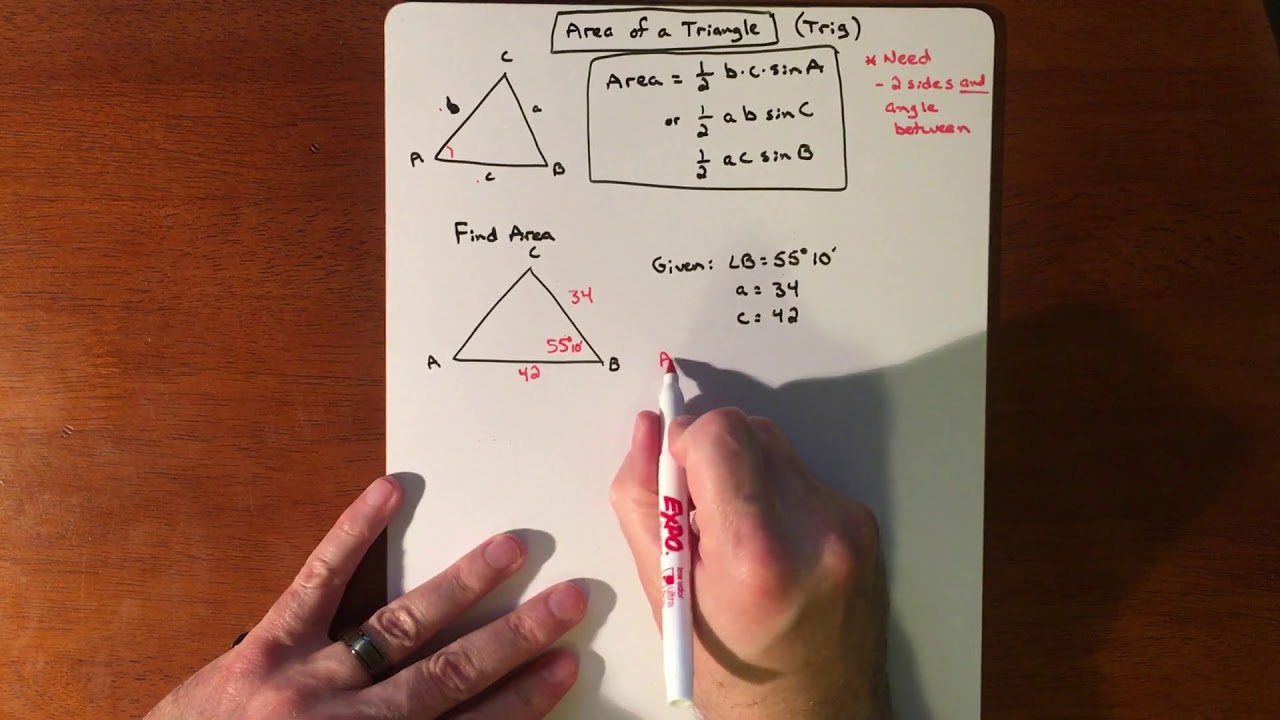 Area of a Triangle (Trig)
C
b
a
A
c
B
Area = 1/2 b·c·sin A
or 1/2 a b sin C
1/2 a c sin B
* Need
- 2 sides and
angle
between
Find Area
C
34
55°10'
A
B
42
Given: ∠B = 55°10'
a = 34
c = 42
A
EXPO.
low odor
ultra